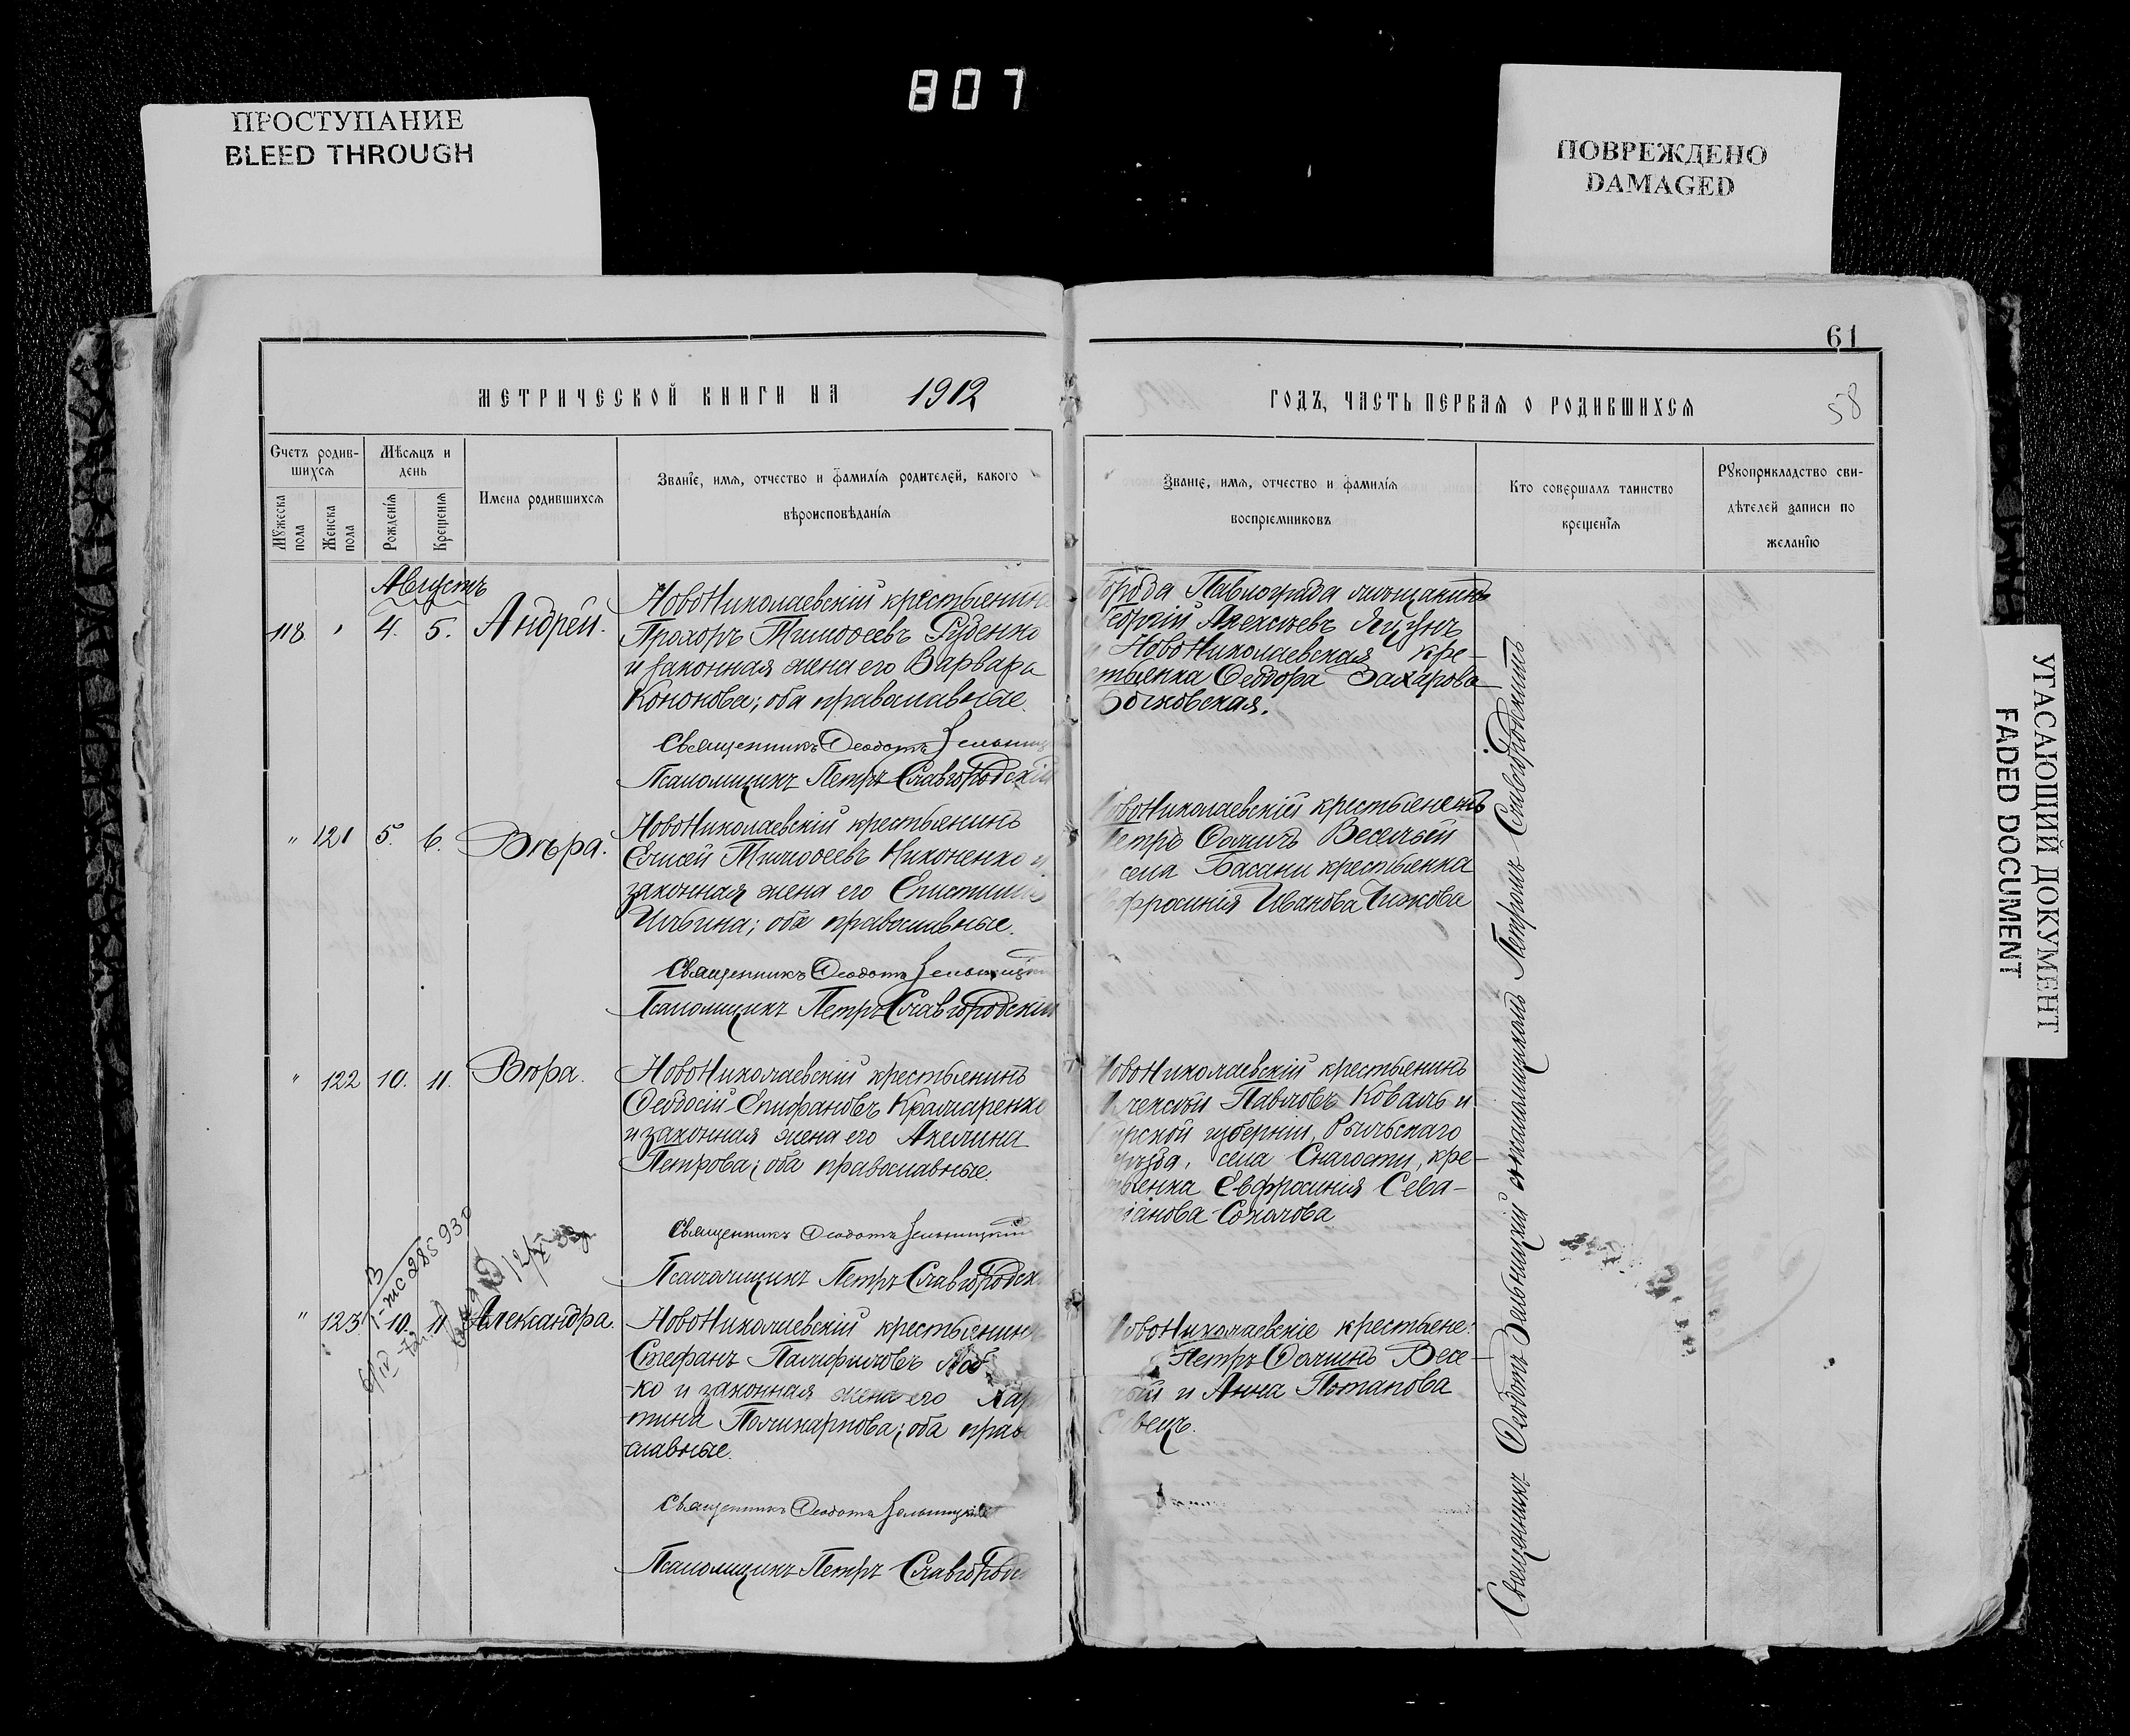 807
ПРОСТУПАНИЕ
BLEED THROUGH
ПОВРЕЖДЕНО
DAMAGED
УГАСАЮЩИЙ ДОКУМЕНТ
FADED DOCUMENT
61
58
МЕТРИЧЕСКОЙ КНИГИ НА 1912
ГОДЪ, ЧАСТЬ ПЕРВАЯ О РОДИВШИХСЯ
Счетъ родив-
шихся
Мѣсяцъ и
день
Мужеска пола
Женска пола
Рожденія
Крещенія
Имена родившихся
Званіе, имя, отчество и фамилія родителей, какого
вѣроисповѣданія
Званіе, имя, отчество и фамилія
воспріемниковъ
Кто совершалъ таинство
крещенія
Рукоприкладство сви-
дѣтелей записи по
желанію
Августъ
118. " 4. 5. Андрей.
НовоНиколаевскій крестьянинъ
Прохоръ Тимоѳеевъ Руденко
и законная жена его Варвара
Кононова; оба православные.
Священникъ Ѳеодотъ Зельницкій
Псаломщикъ Петръ Славгородскій
Города Павлограда мѣщанинъ
Георгій Алексѣевъ Яцунъ
и НовоНиколаевская кре-
стьянка Ѳеодора Захарова
Бочковская.
" 121 5. 6. Вѣра.
НовоНиколаевскій крестьянинъ
Елисей Тимоѳеевъ Никоненко и
законная жена его Епистимія
Ильина; оба православные.
Священникъ Ѳеодотъ Зельницкій
Псаломщикъ Петръ Славгородскій
НовоНиколаевскій крестьянинъ
Петръ Ѳоминъ Веселый
и села Басани крестьянка
Евфросинія Иванова Чижова
" 122 10. 11. Вѣра.
НовоНиколаевскій крестьянинъ
Ѳеодосій Епифановъ Крамаренко
и законная жена его Акелина
Петрова; оба православные.
Священникъ Ѳеодотъ Зельницкій
Псаломщикъ Петръ Славгородск
НовоНиколаевскій крестьянинъ
Алексѣй Павловъ Коваль и
Курской губерніи, Рыльскаго
уѣзда, села Снагости, кре-
стьянка Евфросинія Сева-
стіанова Соколова
" 123 10. 11. Александра.
НовоНиколаевскій крестьянинъ
Стефанъ Памфиловъ
-ко и законная жена его Хар
тина Поликарпова; оба право
славные.
Священникъ Ѳеодотъ Зельницкій
Псаломщикъ Петръ Славгородс
НовоНиколаевскіе крестьяне:
Петръ Ѳоминъ Весе-
лый и Анна Потапова
Швецъ.
Священникъ Ѳеодотъ Зельницкій съ псаломщикомъ Петромъ Славгородскимъ